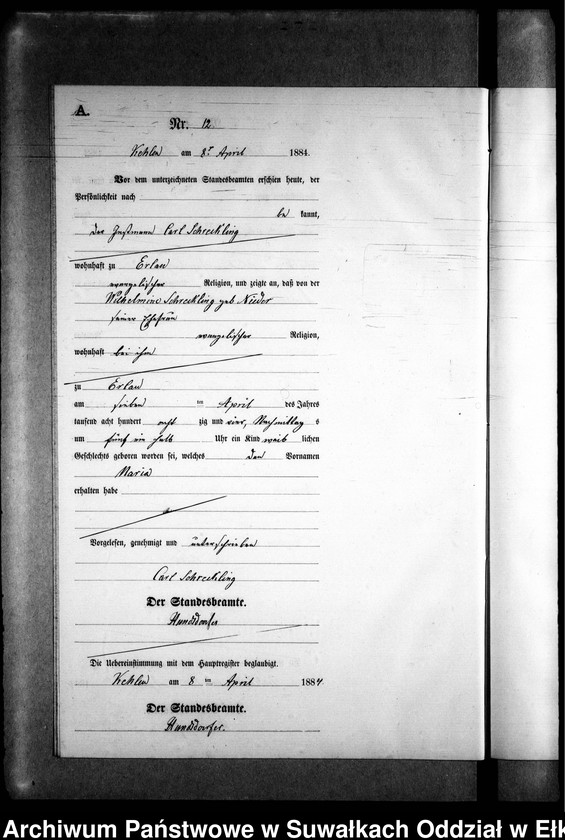 A.
Nr. 12
am 8t April 1884.
Vor dem unterzeichneten Standesbeamten erschien heute, der
Persönlichkeit nach
be kannt,
der Instmann Carl Schreckling
wohnhaft zu Erlau
evangelischer Religion, und zeigte an, daß von der
Wilhelmine Schreckling geb. Nieder
seiner Ehefrau
evangelischer Religion,
wohnhaft bei ihm
zu Erlau
am sieben ten April des Jahres
tausend acht hundert acht zig und vier, Nachmittag s
um fünf ein halb Uhr ein Kind weib lichen
Geschlechts geboren worden sei, welches den Vornamen
Maria
erhalten habe
Vorgelesen, genehmigt und unterschrieben
Carl Schreckling
Der Standesbeamte.
Hundsdorfer
Die Uebereinstimmung mit dem Hauptregister beglaubigt.
am 8 ten April 1884.
Der Standesbeamte.
Hundsdorfer.
Archiwum Państwowe w Suwałkach Oddział w Ełk